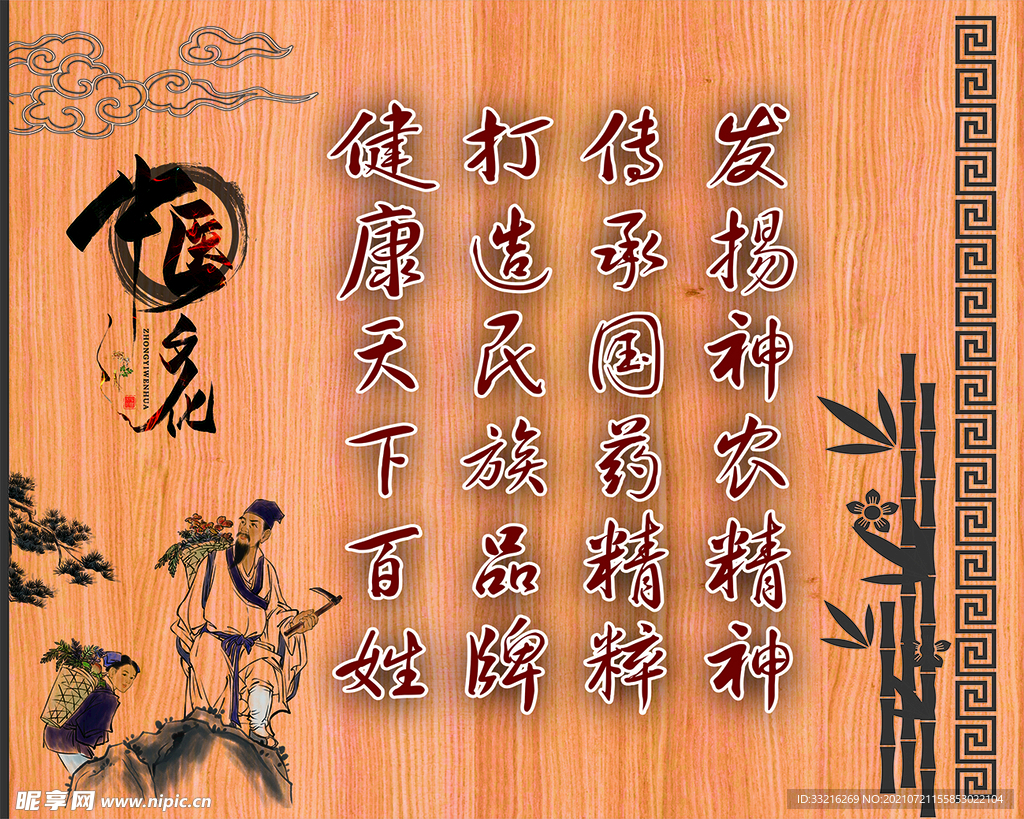 发揚神农精神
传承国药精粹
打造民族品牌
健康天下百姓
中医
文化
ZHONGYIWENHUA
昵享网 www.nipic.cn
ID:33216269 NO:20210721155853022104